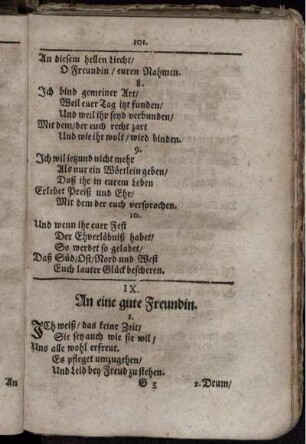 101.
An diesem hellen Liecht/
O Freundin / euren Nahmen.
8.
Ich bind gemeiner Art/
Weil euer Tag itzt funden/
Und weil ihr seyd verbunden/
Mit dem/der euch recht zart
Und wie ihr wolt/ wird binden.
9.
Ich wil ietzund nicht mehr
Als nur ein Wörtlein geben/
Daß ihr in eurem Leben
Erlebet Preiß und Ehr/
Mit dem der euch versprochen.
10.
Und wenn ihr euer Fest
Der Ehverlöbniß habet/
So werdet so gelabet/
Daß Süd/Ost/Nord und West
Euch lauter Glück bescheren.
IX.
An eine gute Freundin.
1.
ICh weiß/ das keine Zeit/
Sie sey auch wie sie wil/
Uns alle wohl erfreut.
Es pfleget umzugehen/
Und Leid bey Freud zu stehen.
G 5
2. Drum/
An